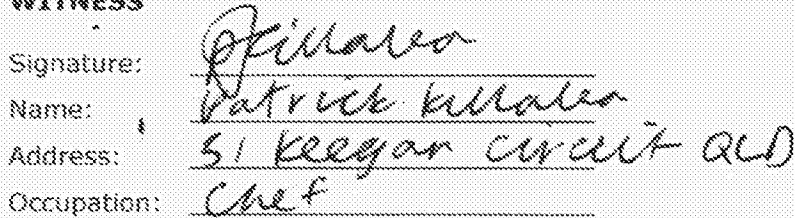 WITNESS
Signature: PKillalea
Name: Patrick Killalea
Address: 51 Keegan circuit QLD
Occupation: Chef